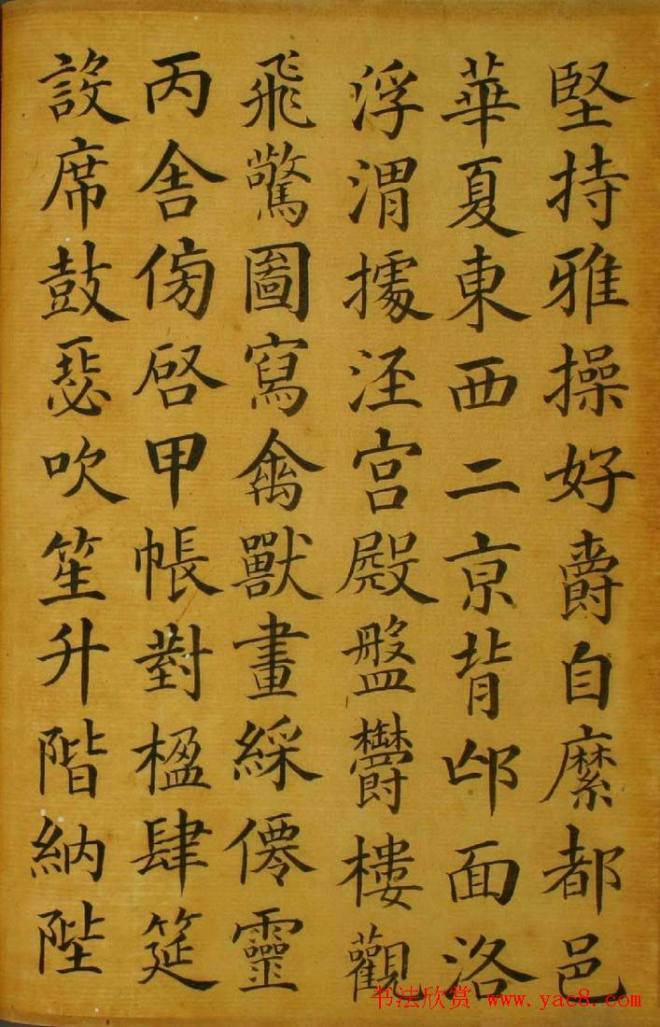 堅持雅操好爵自縻都邑
華夏東西二京背邙面洛
浮渭據涇宮殿盤鬱樓觀
飛驚圖寫禽獸畫綵僊靈
丙舍傍啓甲帳對楹肆筵
設席鼓瑟吹笙升階納陛
书法欣赏 www.yac8.com